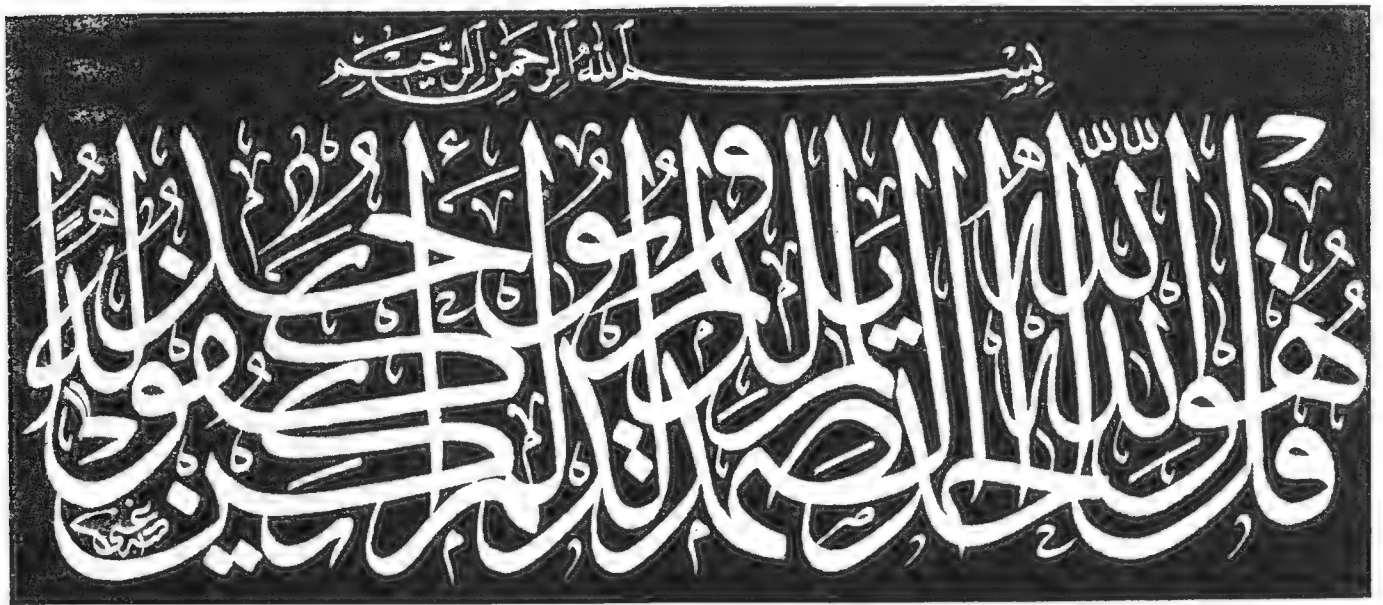 بِسْمِ اللهِ الرَّحْمٰنِ الرَّحِيمِ
قُلْ هُوَ اللّٰهُ اَحَدٌ اَللّٰهُ الصَّمَدُ لَمْ يَلِدْ وَلَمْ يُولَدْ وَلَمْ يَكُنْ لَهُ كُفُوًا اَحَدٌ